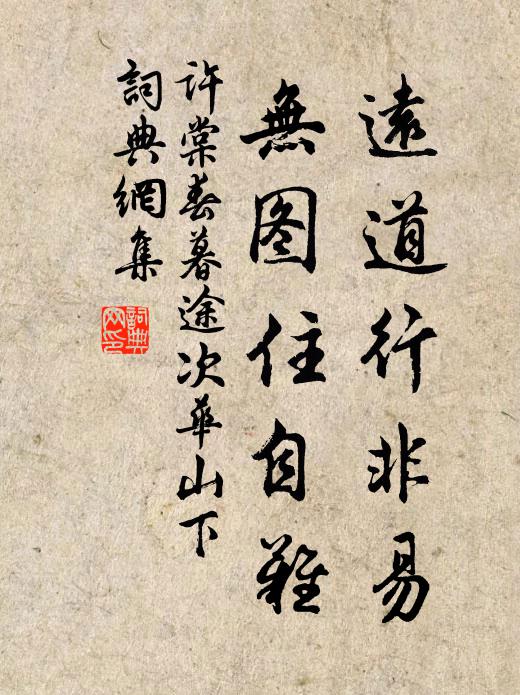 遠道行非易
無图住自難
許棠春暮途次華山下
詞典網集
詞典
网印